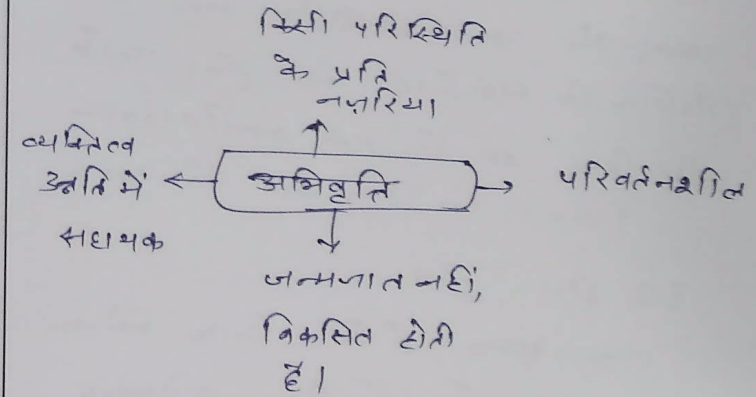 किसी परिस्थिति
के प्रति
नज़रिया
व्यक्तित्व
उन्नति में
सहायक
अभिवृत्ति
परिवर्तनशील
जन्मजात नहीं,
विकसित होती
है।